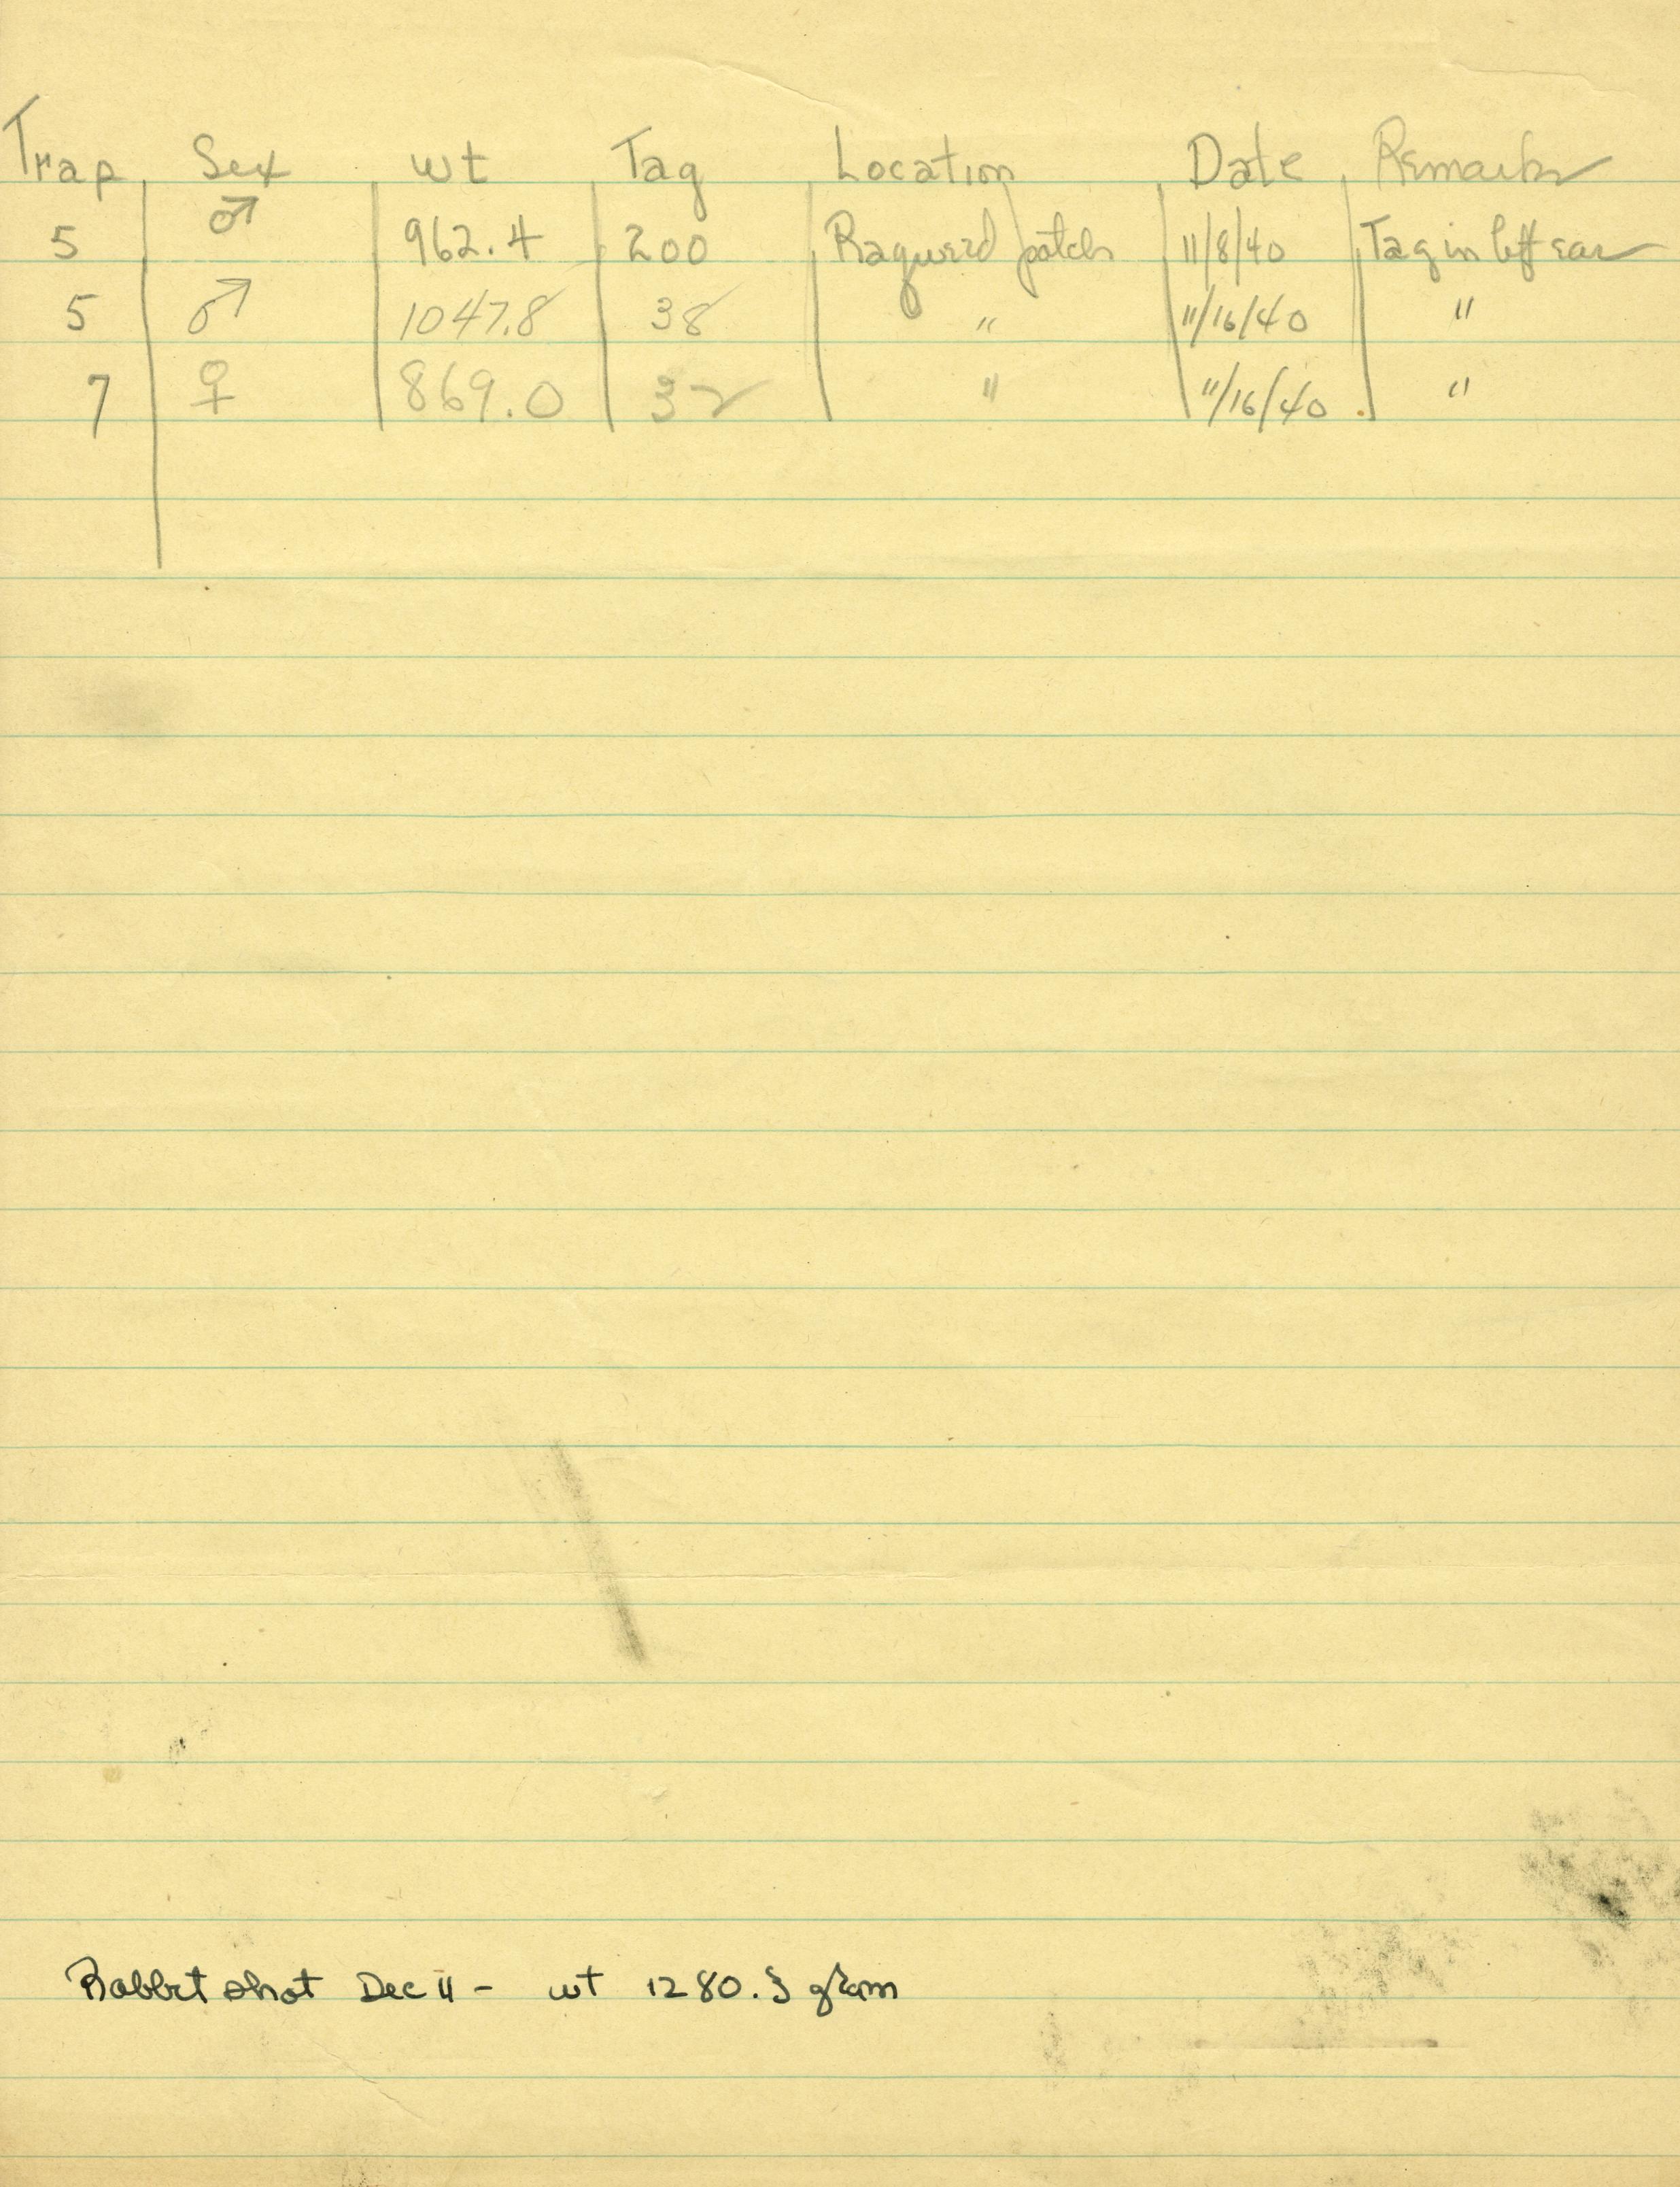 Trap Sex wt Tag Location Date Remarks
5 ♂ 962.4 200 Raqweed patch 11/8/40 Tag in left ear
5 ♂ 1047.8 38 " 11/16/40 "
7 ♀ 869.0 32 " 11/16/40 "
Rabbit shot Dec 11 - wt 1280.3 gram